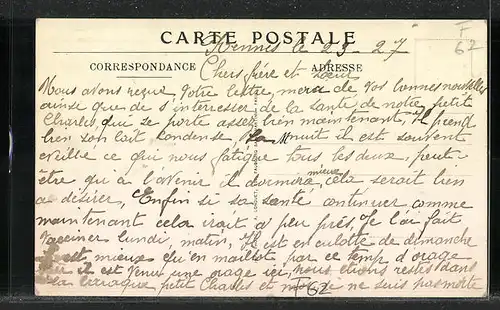 CARTE POSTALE
Rennes le 29-27
F
62
CORRESPONDANCE
ADRESSE
Chers frère et sœur
Nous avons reçue votre lettre, merci de vos bonnes nouvelles
ainsi que de s'interresser de la santé de notre petit
Charles, qui se porte assez bien maintenant, Il prend
bien son lait condensé La nuit il est souvent
éveillé ce qui nous fatigue tous les deux, peut-
être qu'à l'avenir il dormira mieux cela serait bien
a désirer, Enfin si sa santé continuer comme
maintenant cela irait a peu près Je l'ai fait
vacciner lundi, matin, Il est en culotte de dimanche
il est mieux qu'en maillot par ce temp d'orage
hier il est venu une orage ici, nous étions restés dans
la baraque petit Charles et moi je ne suis pas morte
F 62